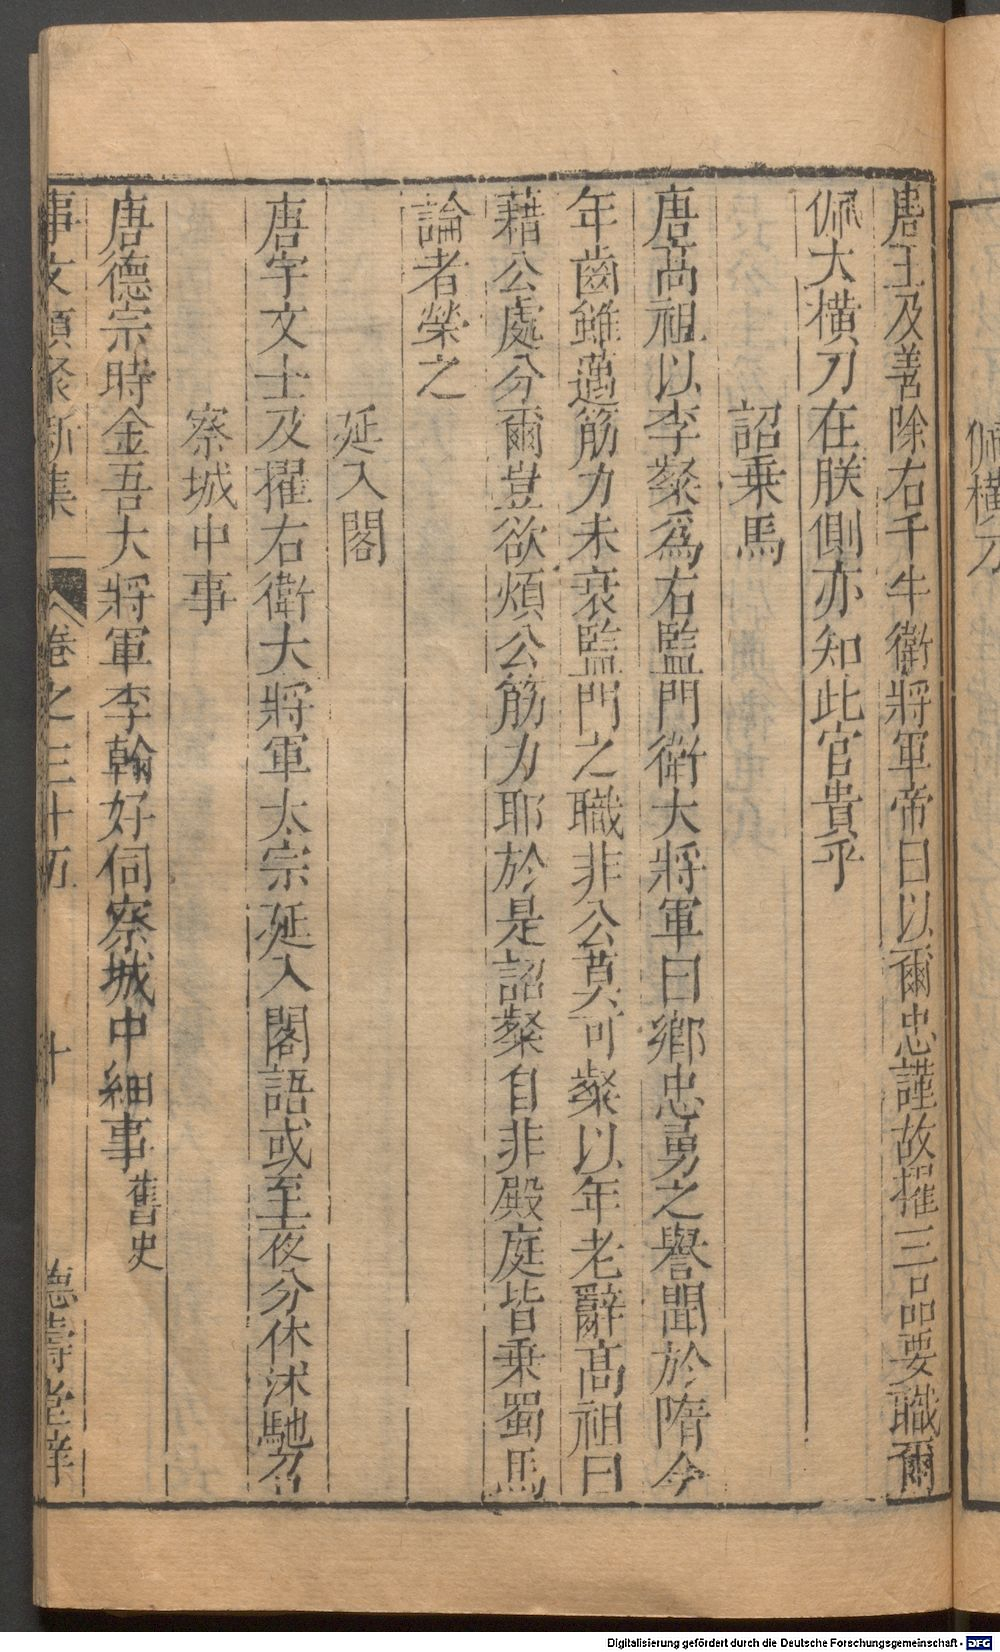 佩橫刀
唐王及善除右千牛衛將軍帝曰以爾忠謹故擢三品要職爾
佩大橫刀在朕側亦知此官貴乎
詔乗馬
唐髙祖以李粲爲右監門衛大將軍曰鄉忠勇之譽聞於隋今
年齒雖邁筋力未衰監門之職非公莫可粲以年老辭髙祖曰
藉公處分爾豈欲煩公筋力耶於是詔粲自非殿庭皆乗蜀馬
論者榮之
延入閣
唐宇文士及擢右衛大將軍太宗延入閣語或至夜分休沐馳召
察城中事
唐德宗時金吾大將軍李翰好伺察城中細事 舊史
事文類聚新集 卷之三十五 十 德壽堂梓
Digitalisierung gefördert durch die Deutsche Forschungsgemeinschaft - DFG